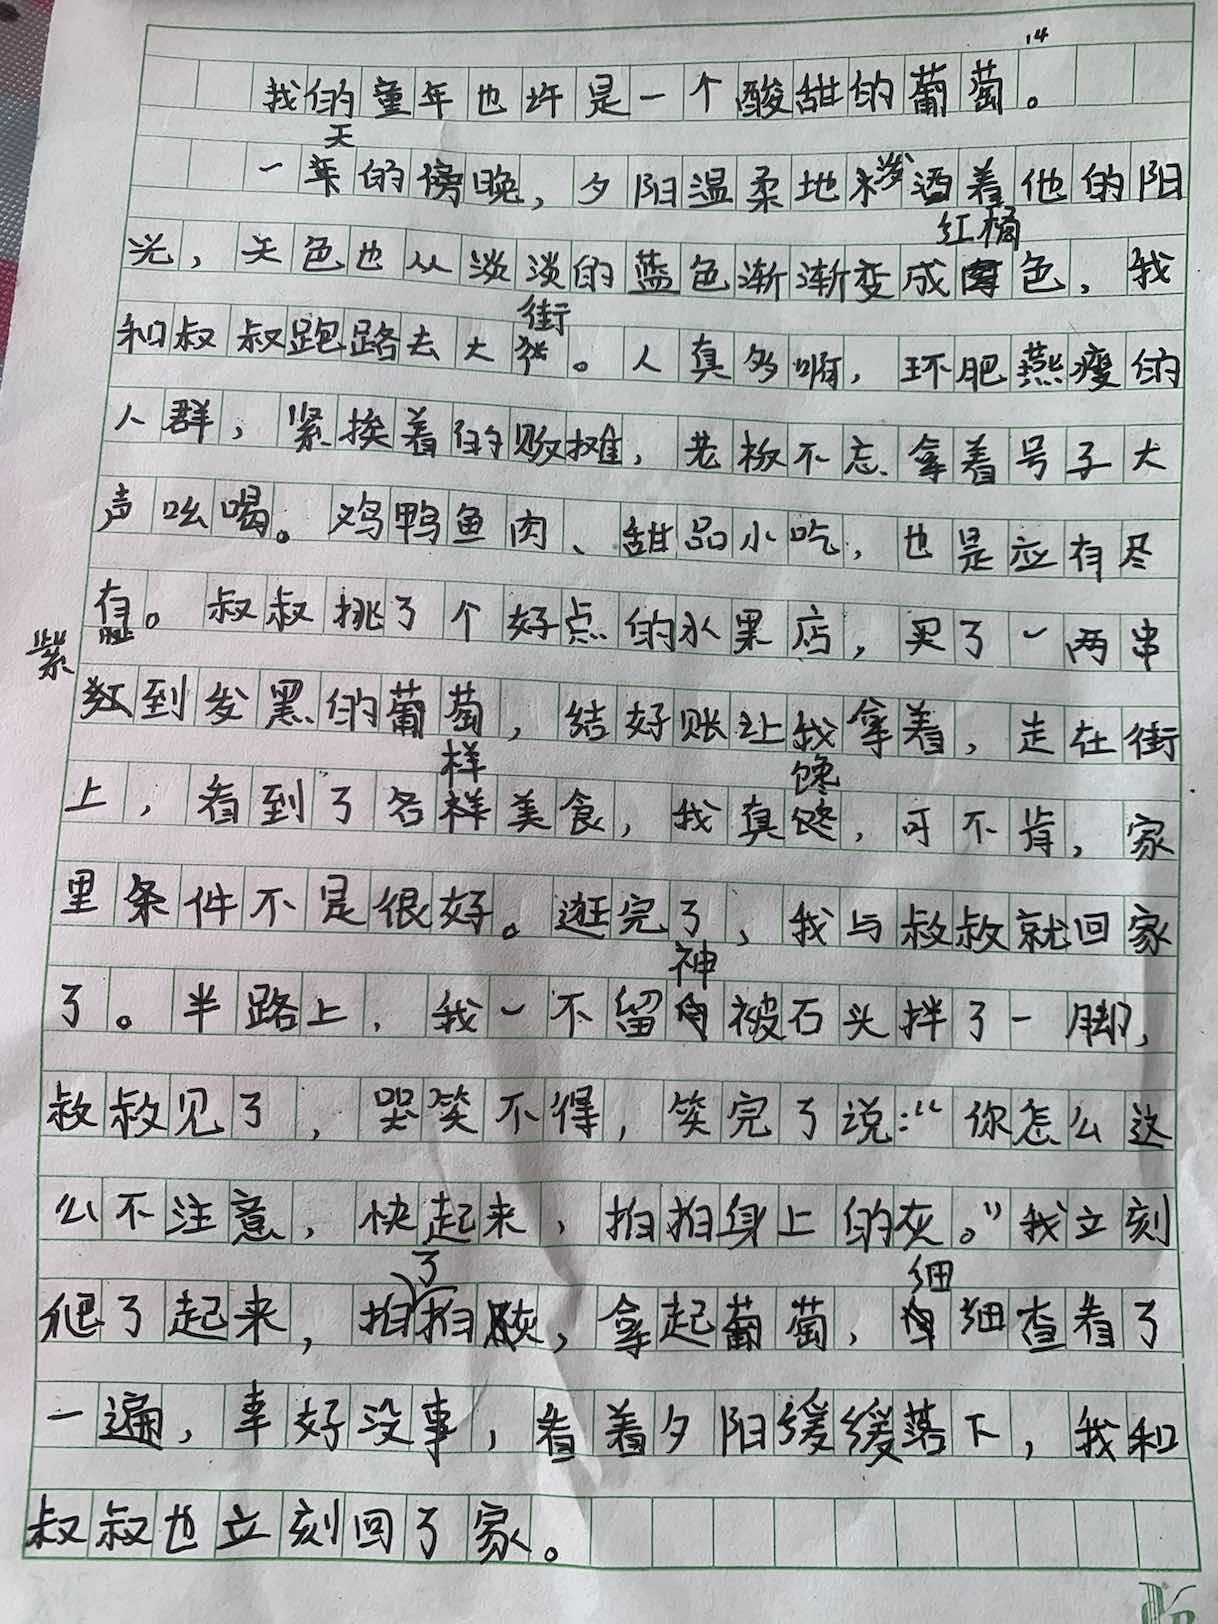 14
我的童年也许是一个酸甜的葡萄。
一天的傍晚，夕阳温柔地洒着他的阳
光，天色也从淡淡的蓝色渐渐变成红橘色，我
和叔叔跑路去大街。人真多啊，环肥燕瘦的
人群，紧挨着的贩摊，老板不忘拿着号子大
声吆喝。鸡鸭鱼肉、甜品小吃，也是应有尽
有。叔叔挑了个好点的水果店，买了一两串
紫红到发黑的葡萄，结好账让我拿着，走在街
上，看到了各样美食，我真馋，可不肯，家
里条件不是很好。逛完了，我与叔叔就回家
了。半路上，我一不留神被石头拌了一脚，
叔叔见了，哭笑不得，笑完了说：“你怎么这
么不注意，快起来，拍拍身上的灰。”我立刻
爬了起来，拍了拍灰，拿起葡萄，细细查看了
一遍，幸好没事，看着夕阳缓缓落下，我和
叔叔也立刻回了家。